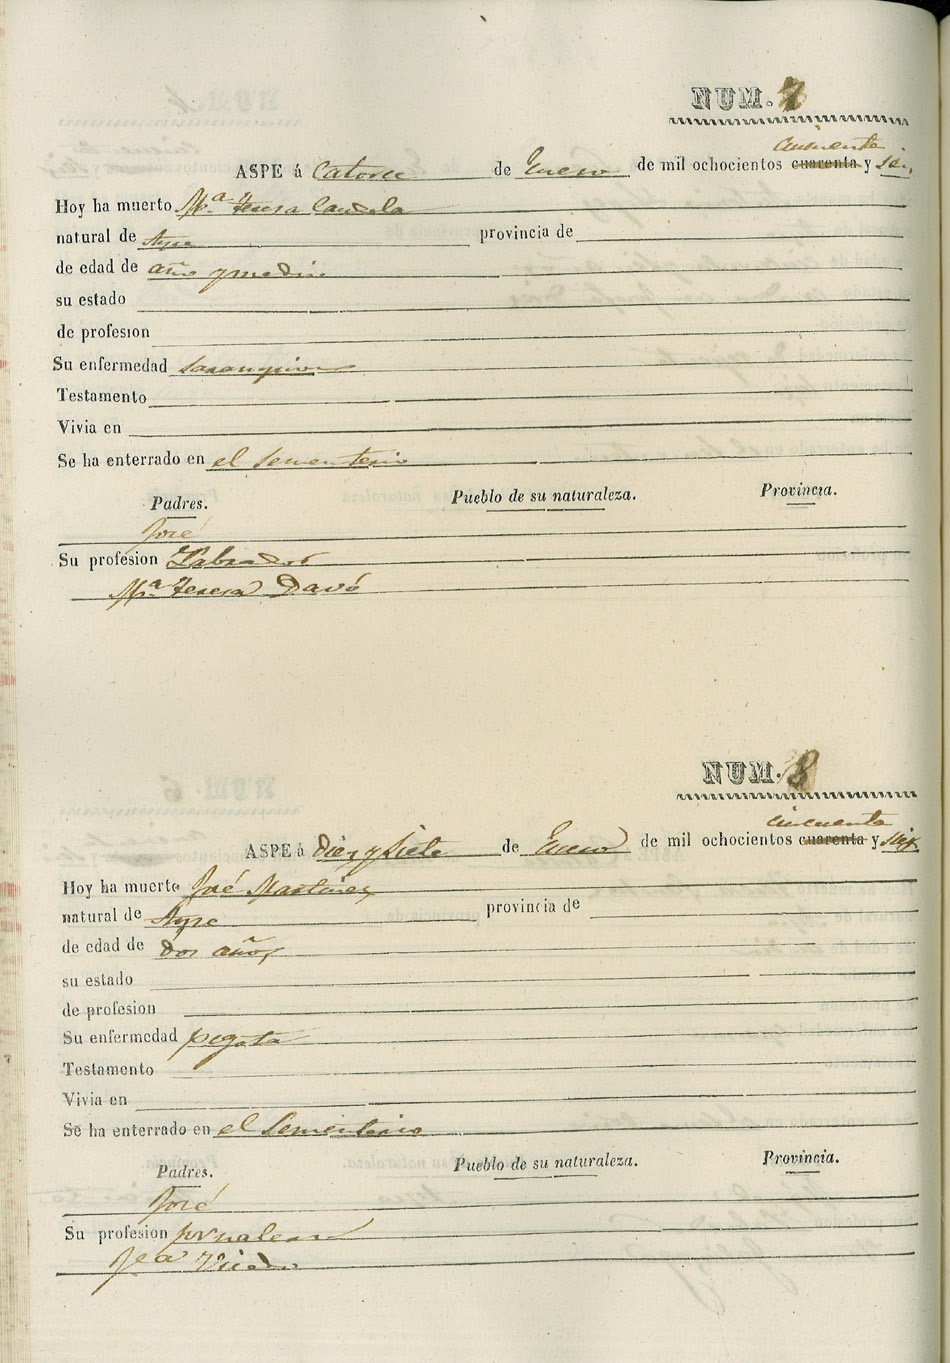 NUM. 7
cincuenta
ASPE á Catorce de Enero de mil ochocientos cuarenta y seis
Hoy ha muerto Mª Teresa Candela
natural de Aspe provincia de
de edad de año y medio
su estado
de profesion
Su enfermedad
Testamento
Vivia en
Se ha enterrado en el Sementerio
Padres. Pueblo de su naturaleza. Provincia.
José
Su profesion Labrador
Mª Teresa Davó
NUM. 8
cincuenta
ASPE á Diez y Siete de Enero de mil ochocientos cuarenta y seis
Hoy ha muerto José Martinez
natural de Aspe provincia de
de edad de dos años
su estado
de profesion
Su enfermedad pigota
Testamento
Vivia en
Se ha enterrado en el Sementerio
Padres. Pueblo de su naturaleza. Provincia.
José
Su profesion jornalero